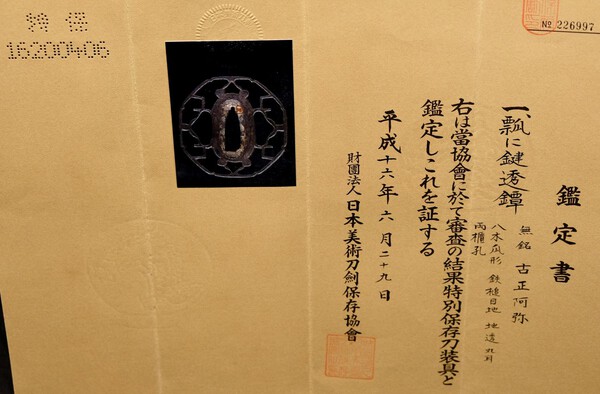 特保
16200406
№ 226997
鑑定書
一、瓢に鍵透鐔
無銘 古正阿弥
八木瓜形 鉄槌目地 地透 丸耳
両櫃孔
右は當協會に於て審査の結果特別保存刀装具と
鑑定しこれを証する
平成十六年六月二十九日
財團法人 日本美術刀劍保存協會